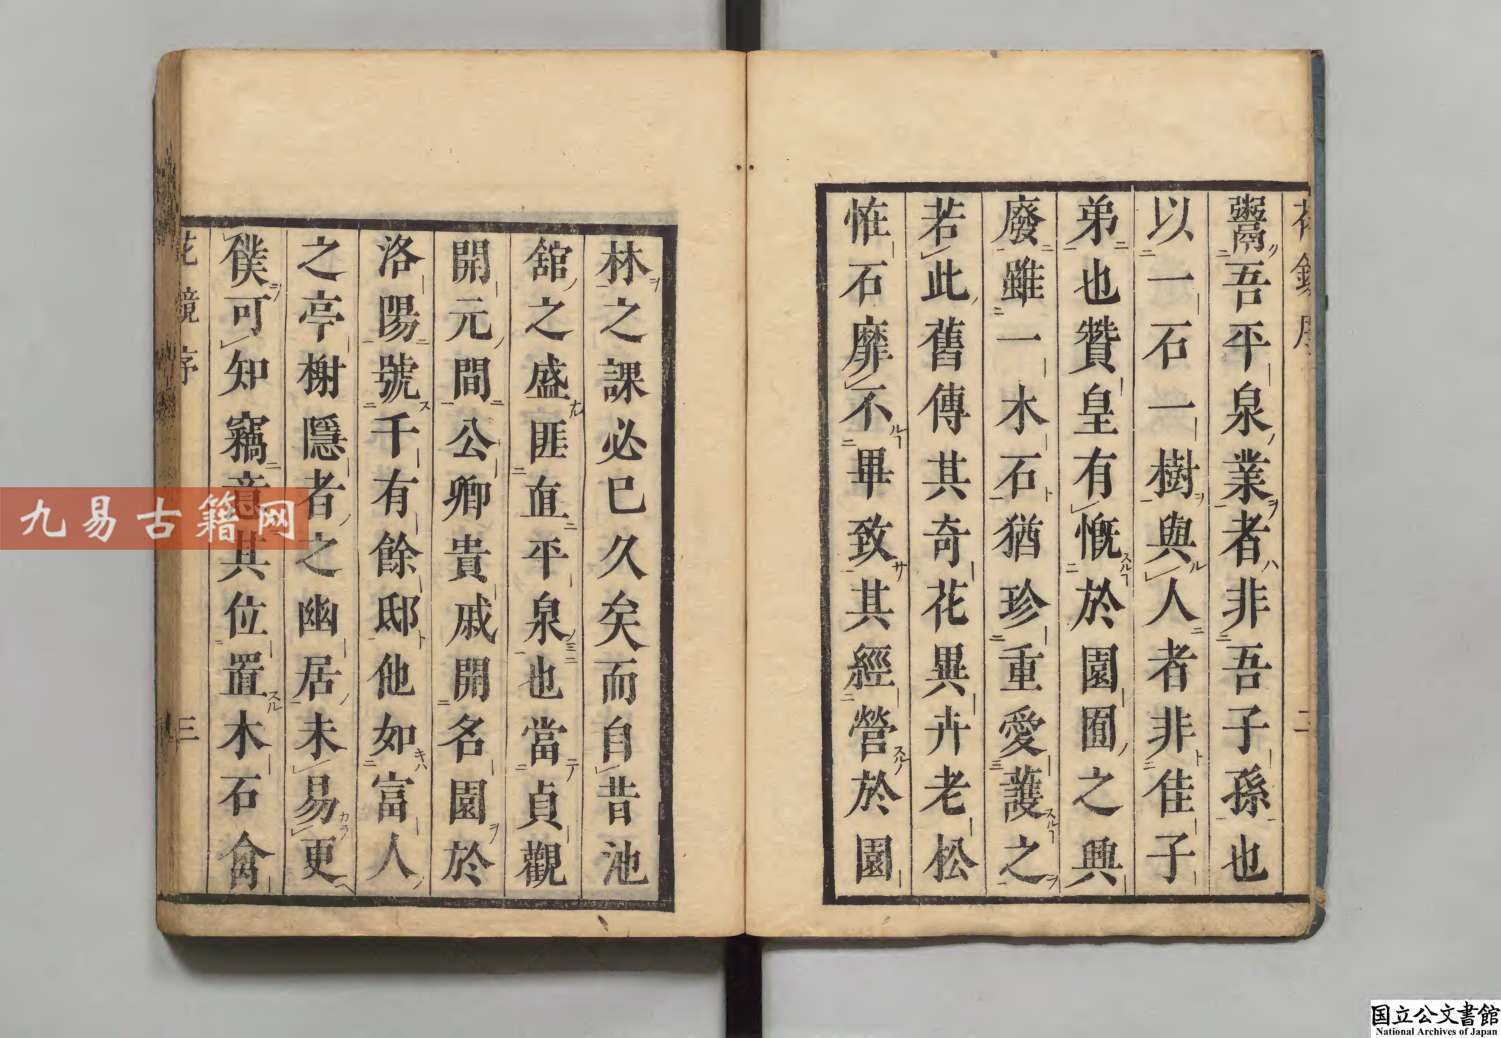 鬻吾平泉業者非吾子孫也
以一石一樹與人者非佳子
弟也贊皇有慨於園囿之興
廢雖一木石猶珍重愛護之
若此舊傳其奇花異卉老松
恠石靡不畢致其經營於園
二
林之課必已久矣而自昔池
舘之盛匪直平泉也當貞觀
開元間公卿貴戚開名園於
洛陽號千有餘邸他如富人
之亭榭隱者之幽居未易更
僕可知竊意其位置木石禽
花鏡序
三
九易古籍网
国立公文書館
National Archives of Japan